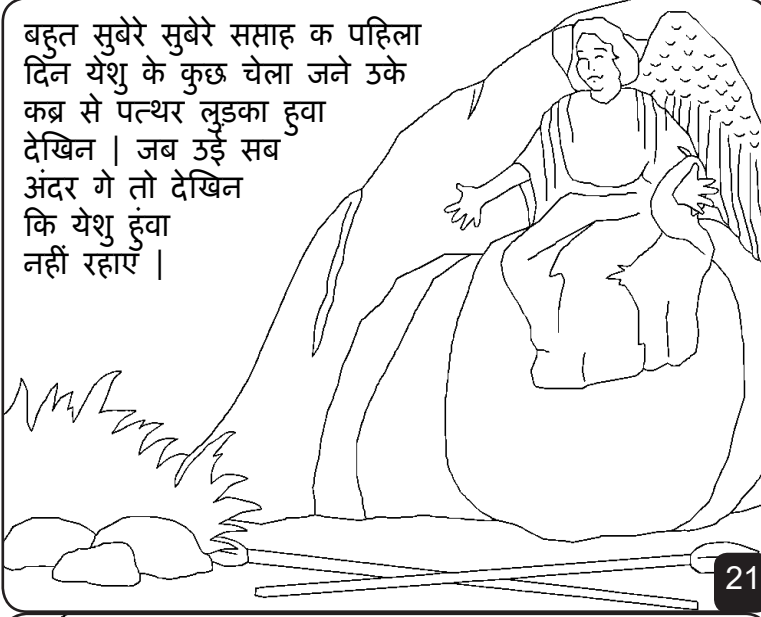 बहुत सुबेरे सुबेरे सप्ताह क पहिला
दिन येशु के कुछ चेला जने उके
कब्र से पत्थर लुड़का हुवा
देखिन | जब उई सब
अंदर गे तो देखिन
कि येशु हुंवा
नहीं रहाएँ |
21